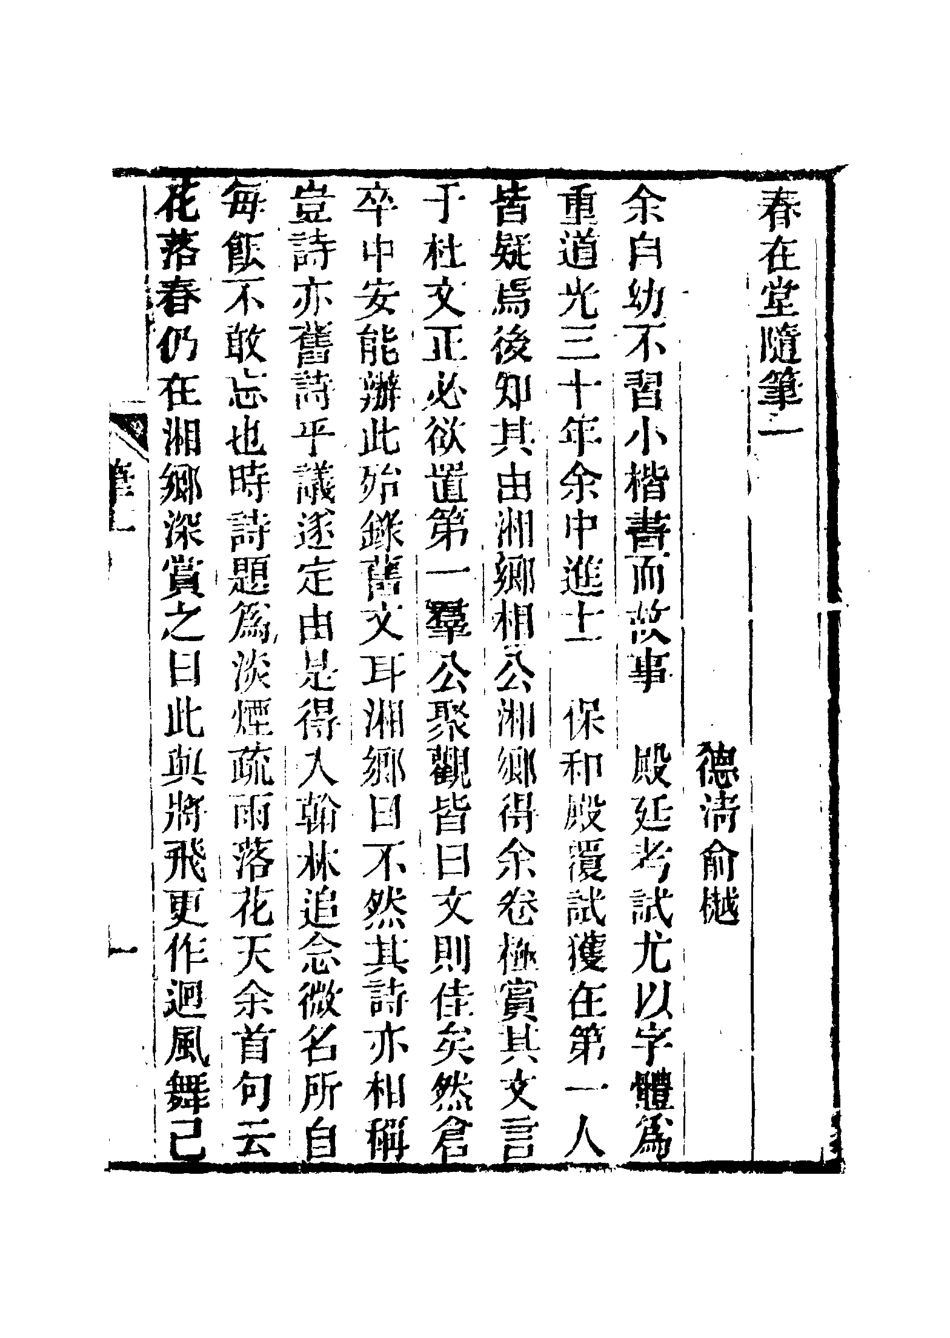 春在堂隨筆一
德淸俞樾
余自幼不習小楷書而故事　殿廷考試尤以字體爲
重道光三十年余中進士　保和殿覆試獲在第一人
皆疑焉後知其由湘鄉相公湘鄉得余卷極賞其文言
于杜文正必欲置第一羣公聚觀皆曰文則佳矣然倉
卒中安能辦此殆錄舊文耳湘鄉曰不然其詩亦相稱
豈詩亦舊詩乎議遂定由是得入翰林追念微名所自
每飯不敢忘也時詩題爲淡煙疏雨落花天余首句云
花落春仍在湘鄉深賞之曰此與將飛更作迴風舞已
筆一
一